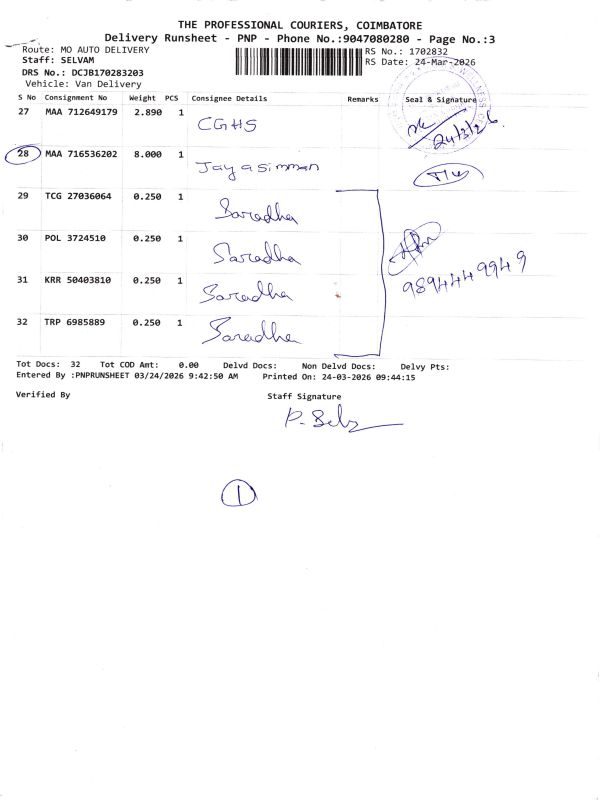 THE PROFESSIONAL COURIERS, COIMBATORE
Delivery Runsheet - PNP - Phone No.:9047080280 - Page No.:3
Route: MO AUTO DELIVERY
RS No.: 1702832
Staff: SELVAM
RS Date: 24-Mar-2026
DRS No.: DCJB170283203
Vehicle: Van Delivery
S No Consignment No Weight PCS Consignee Details Remarks Seal & Signature
27 MAA 712649179 2.890 1 CGHS
24/3/26
28 MAA 716536202 8.000 1 Jayasimman
29 TCG 27036064 0.250 1 Saradha
30 POL 3724510 0.250 1 Saradha
31 KRR 50403810 0.250 1 Saradha
9894449949
32 TRP 6985889 0.250 1 Saradha
Tot Docs: 32 Tot COD Amt: 0.00 Delvd Docs: Non Delvd Docs: Delvy Pts:
Entered By :PNPRUNSHEET 03/24/2026 9:42:50 AM Printed On: 24-03-2026 09:44:15
Verified By Staff Signature
1